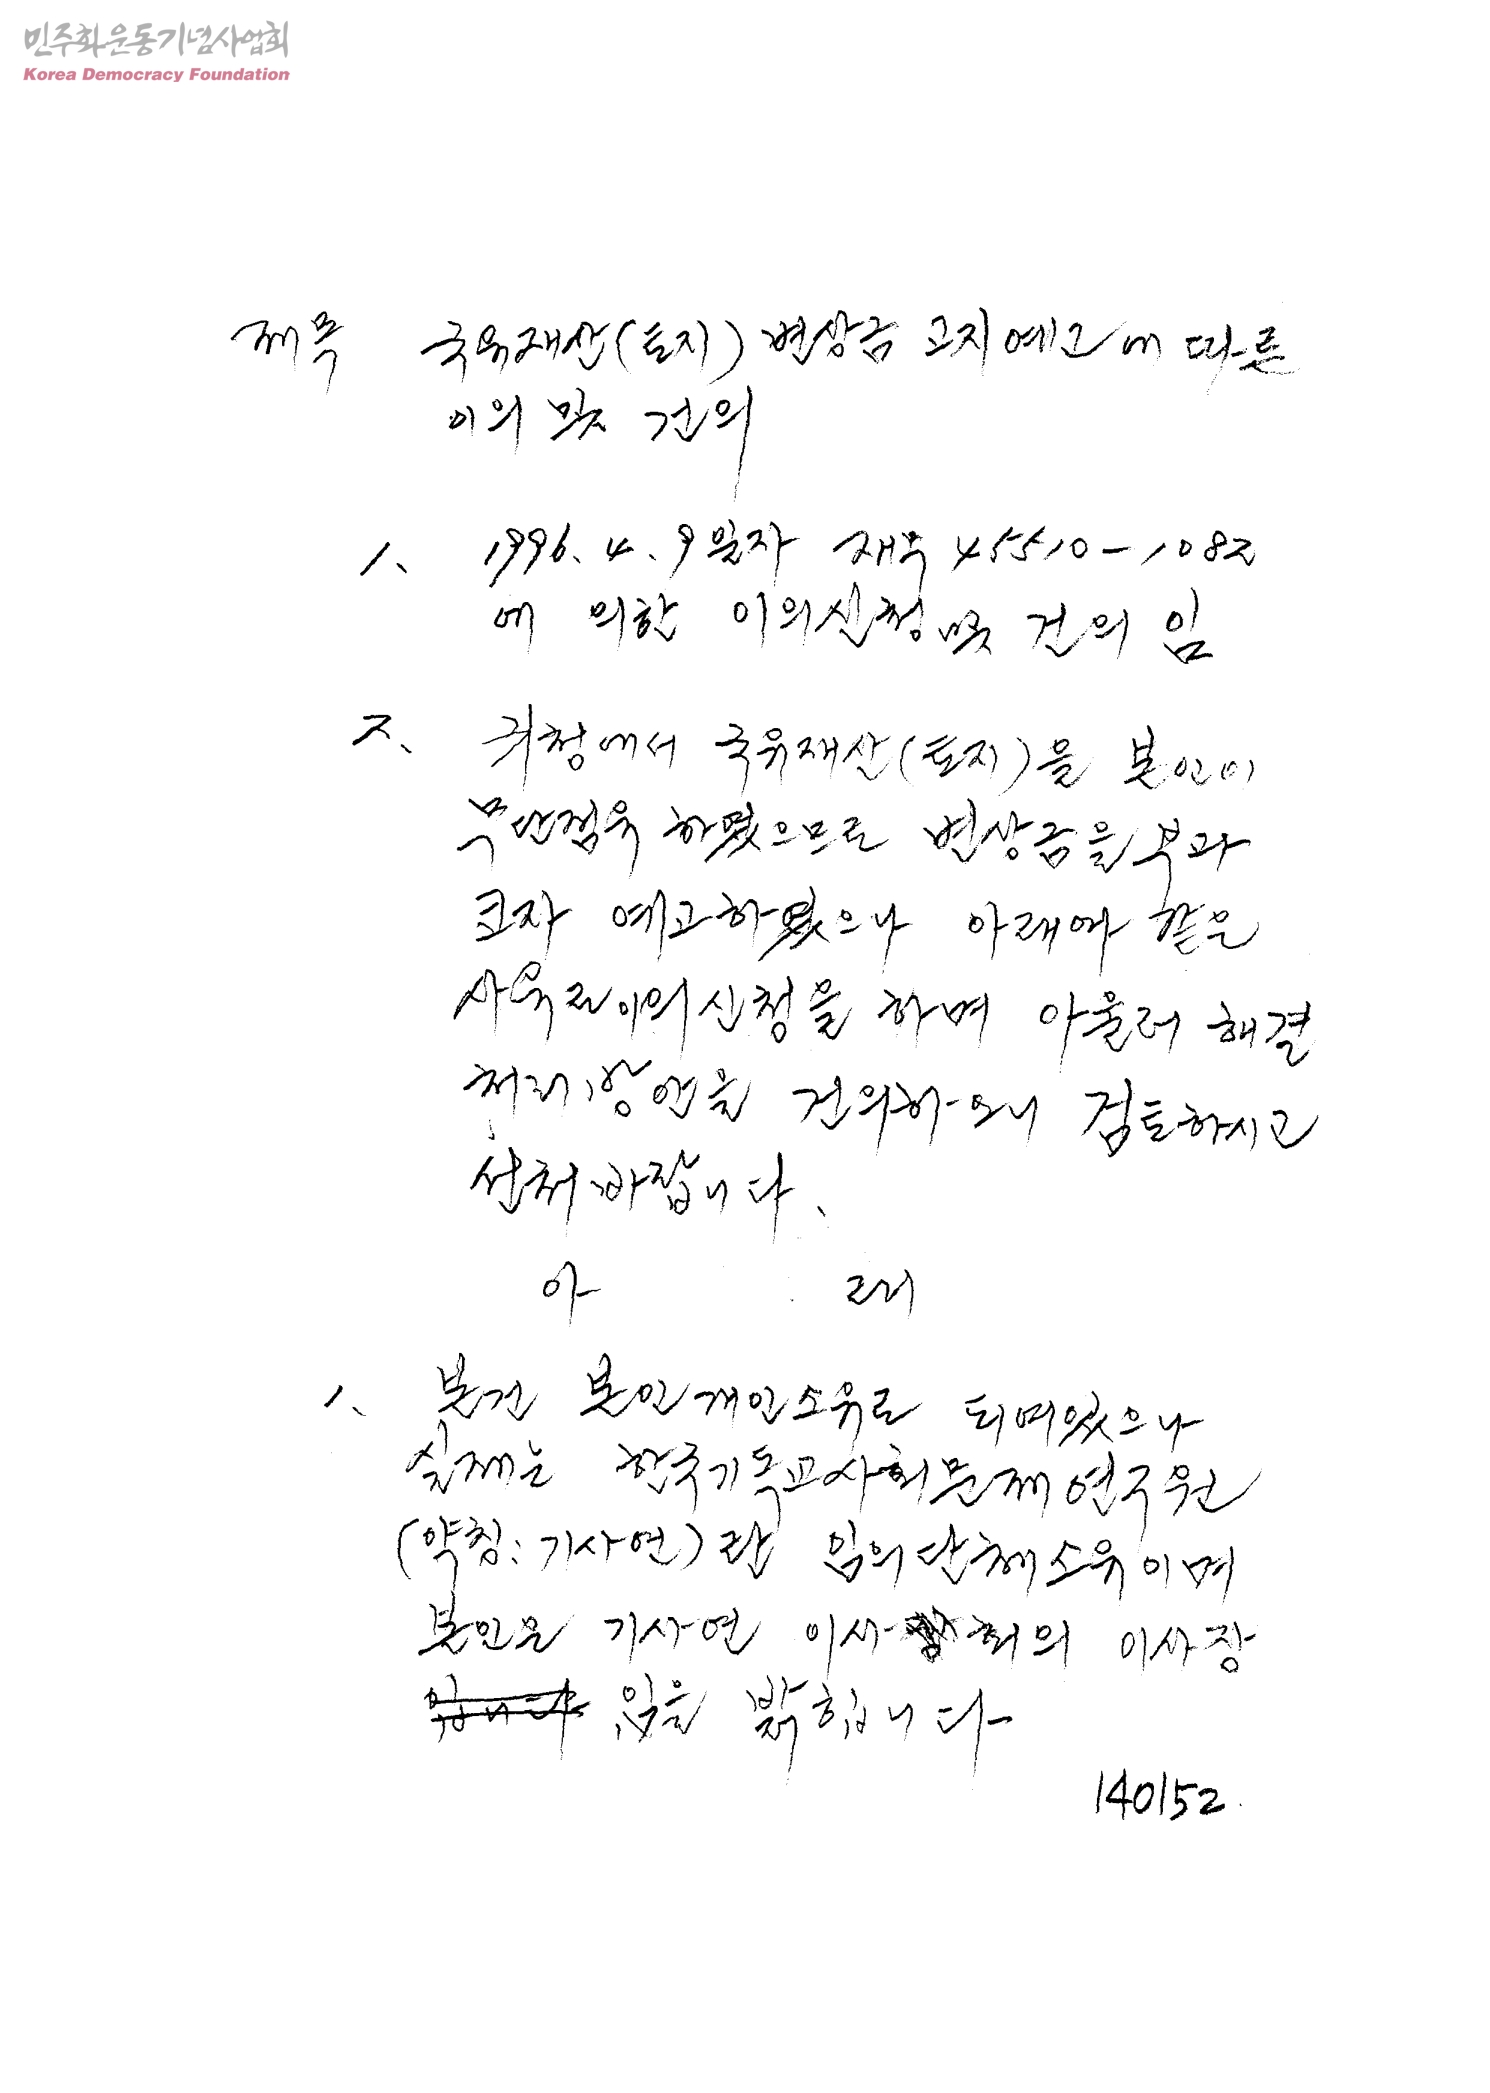 민주화운동기념사업회
Korea Democracy Foundation
제목 국유재산(토지) 변상금 고지예고에 따른
이의 및 건의
1. 1996. 4. 9일자 재무 45510-1082
에 의한 이의신청 및 건의 임
2. 귀청에서 국유재산(토지)을 본인이
무단점유 하였으므로 변상금을 부과
코자 예고하였으나 아래와 같은
사유로 이의신청을 하며 아울러 해결
처리방안을 건의하오니 검토하시고
선처바랍니다.
아 래
1. 본건 본인개인소유로 되여있으나
실제는 한국기독교사회문제연구원
(약칭:기사연)란 임의단체소유이며
본인은 기사연 이사회의 이사장
입니다 임을 밝힙니다
140152